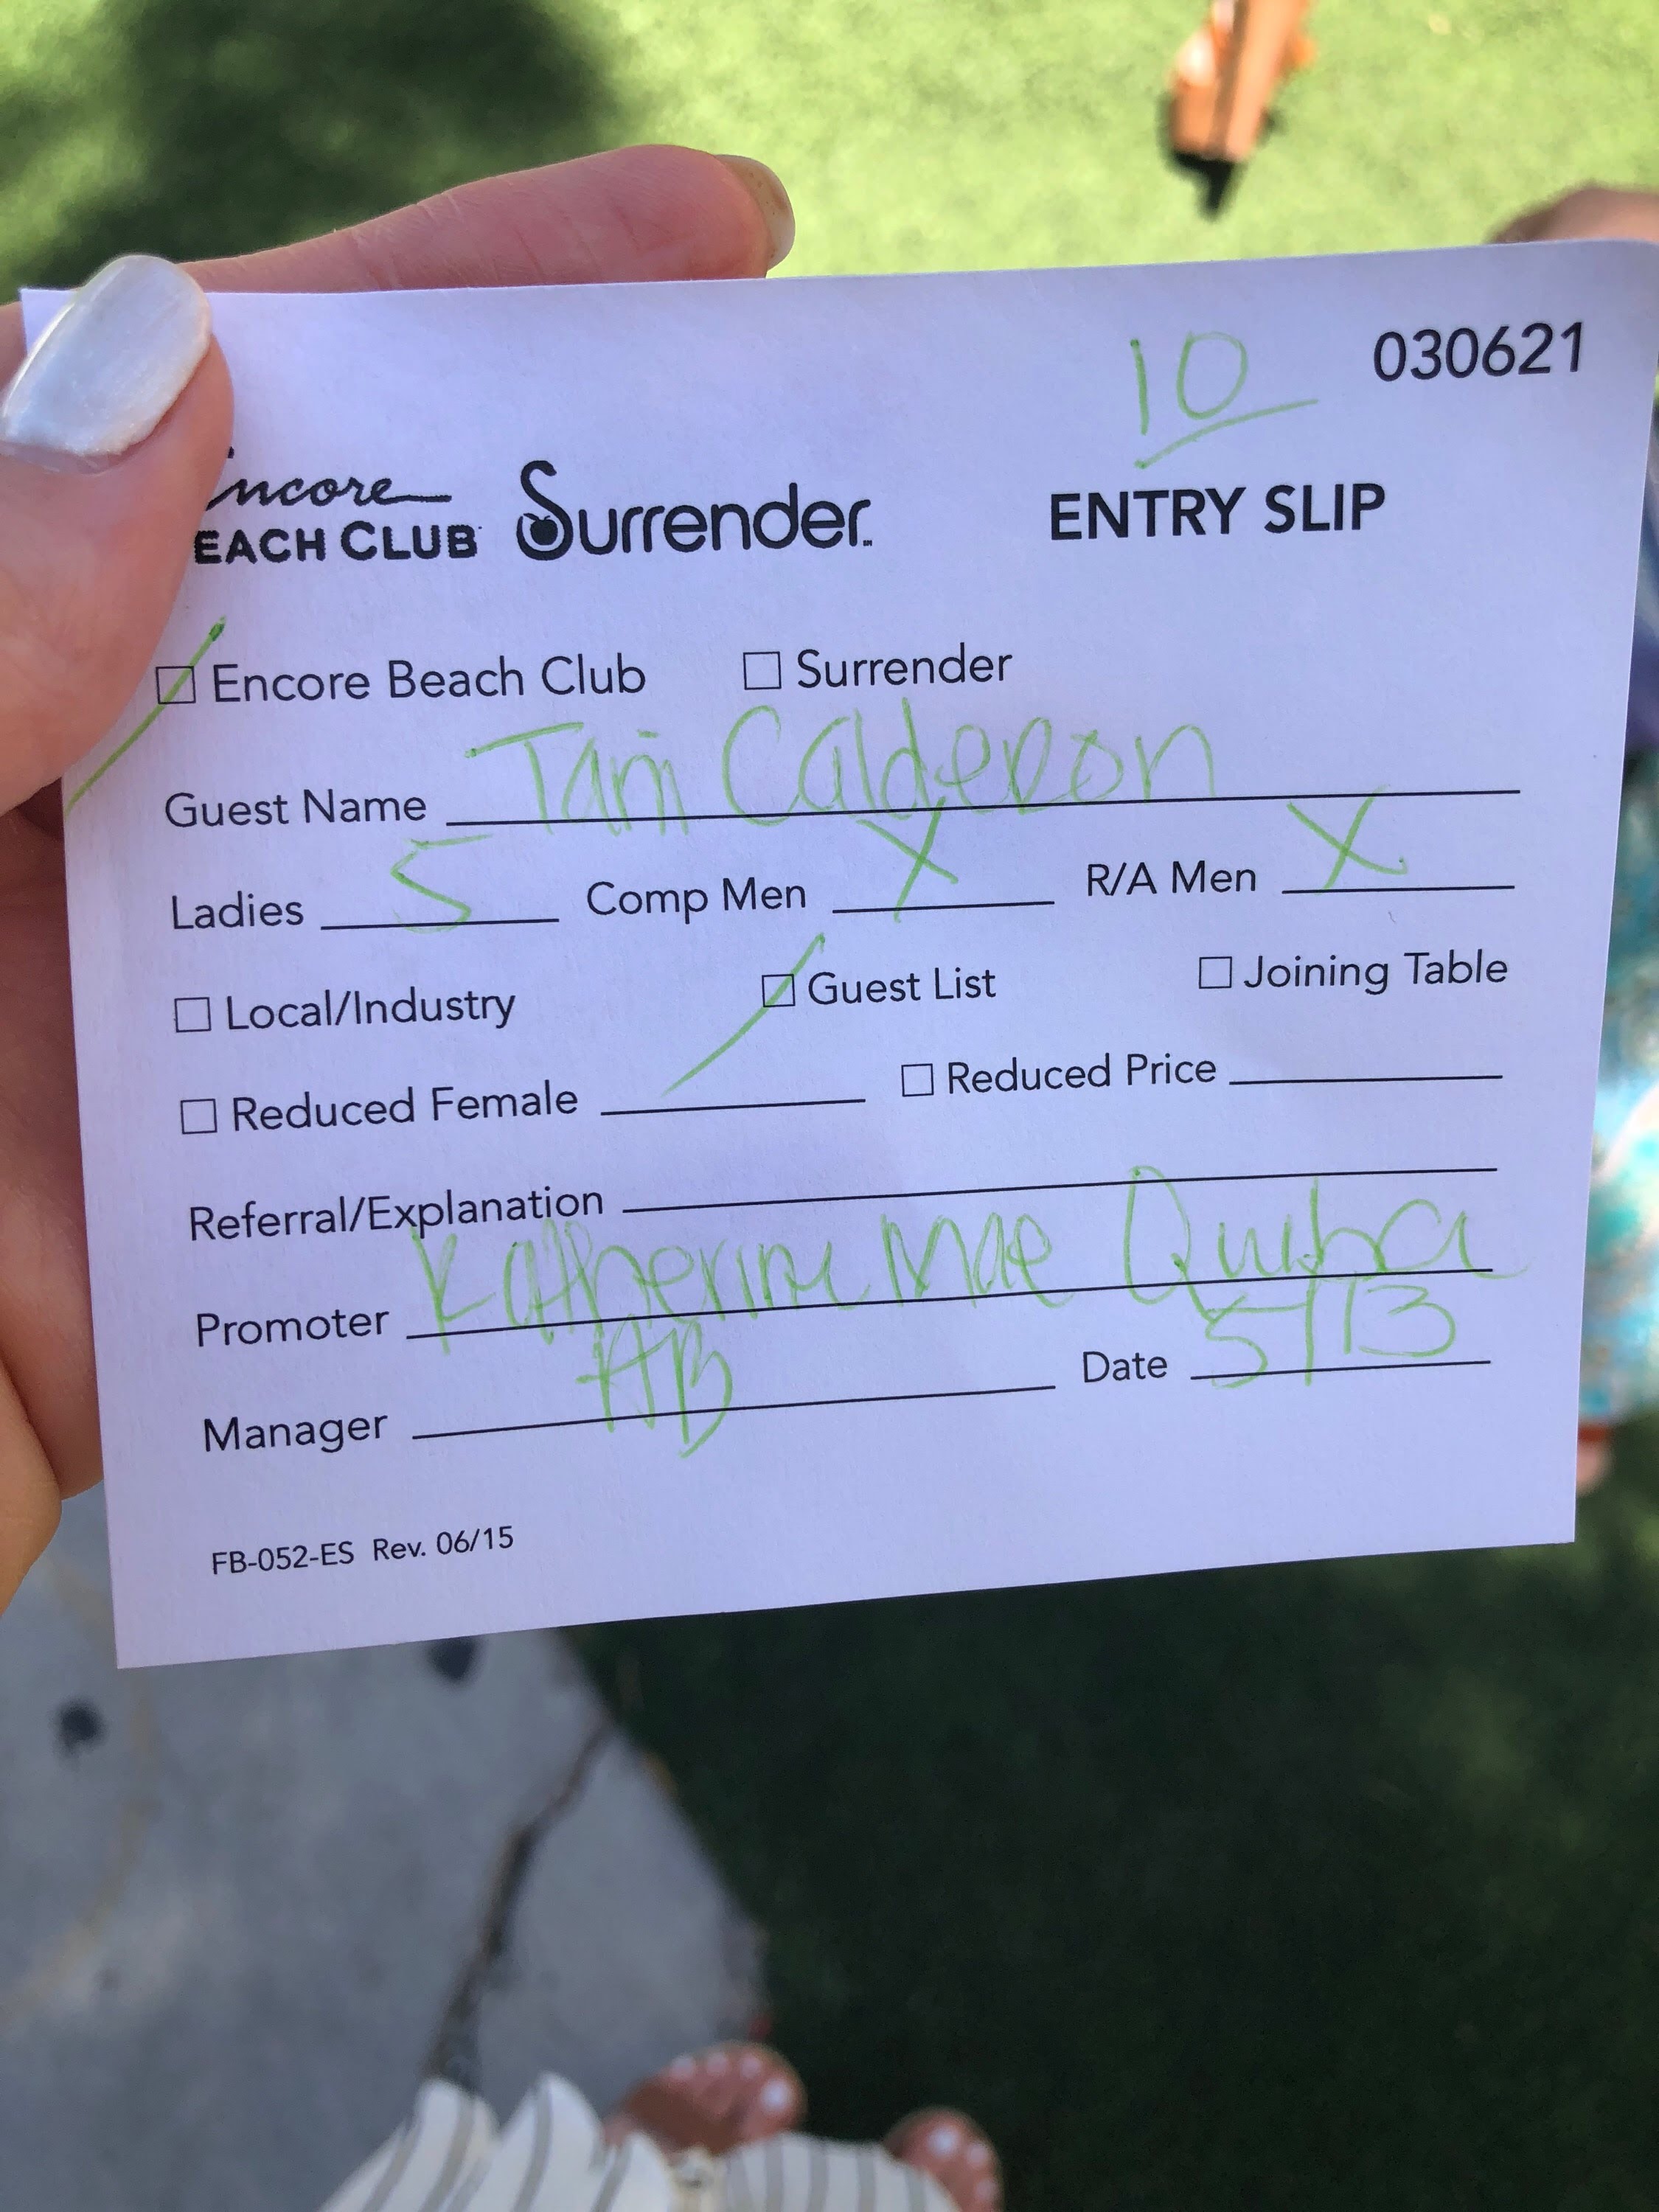 10 030621
ncore
EACH CLUB Surrender. ENTRY SLIP
Encore Beach Club Surrender
Guest Name Tani Calderon
Ladies 5 Comp Men X R/A Men X
Local/Industry Guest List Joining Table
Reduced Female Reduced Price
Referral/Explanation
Promoter Katherine Mae
Manager AB Date 5/13
FB-052-ES Rev. 06/15